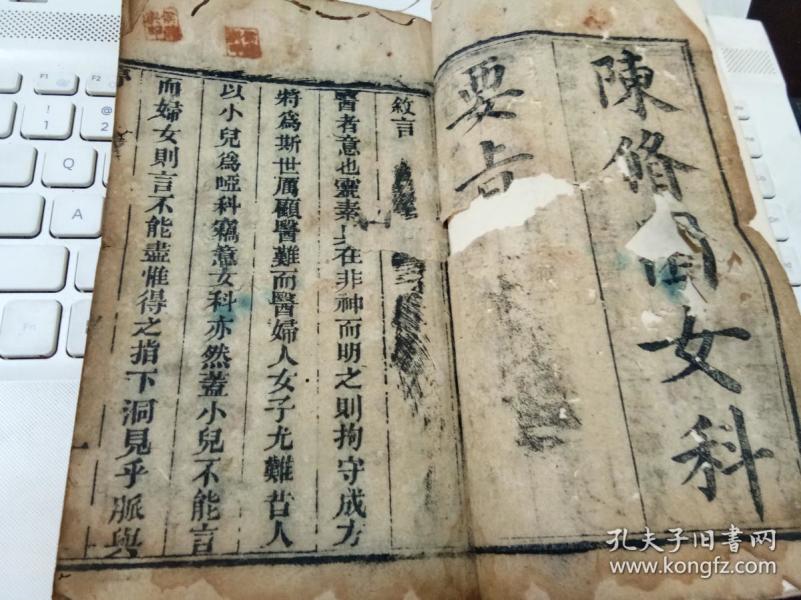 陳修園女科
要旨
敘言
醫者意也靈素具在非神而明之則拘守成方
將爲斯世厲顧醫難而醫婦人女子尤難昔人
以小兒爲啞科竊意女科亦然蓋小兒不能言
而婦女則言不能盡惟得之指下洞見乎脈與
序
一
孔夫子旧书网
www.kongfz.com